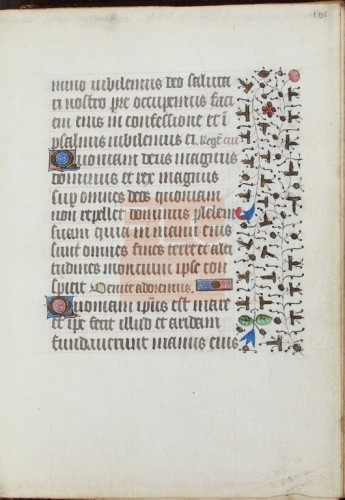 101
mino iubilemus deo saluta
ri nostro pre occupemus faci
em eius in confessione et i
psalmis iubilemus ei. Regē cui
Quoniam deus magnus
dominus et rex magnus
sup omnes deos quoniam
non repellet dominus plebem
suam quia in manu eius
sunt omnes fines terre et alti
tudines moncium ipse con
spicit Venite adoremus.
Quoniam ipius est mare
et ipe fecit illud et aridam
fundauerunt manus eius